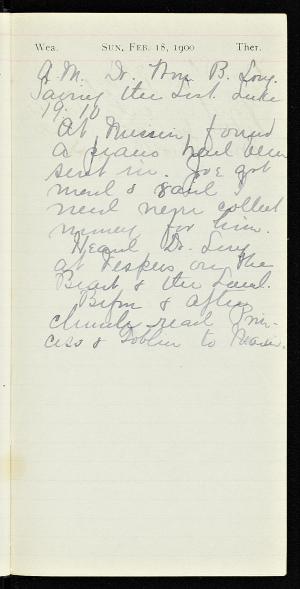 Wea. SUN, FEB. 18, 1900 Ther.
A.M. Dr. Wm B. Long.
Saving the Lost. Luke
19:10
At Mission, found
a piano had been
sent in. Joe got
mad & said I
need never collect
money for him.
Heard Dr. Long
at Vespers on the
Beast & the Land.
Before & after
church read Prin-
cess & Goblin to